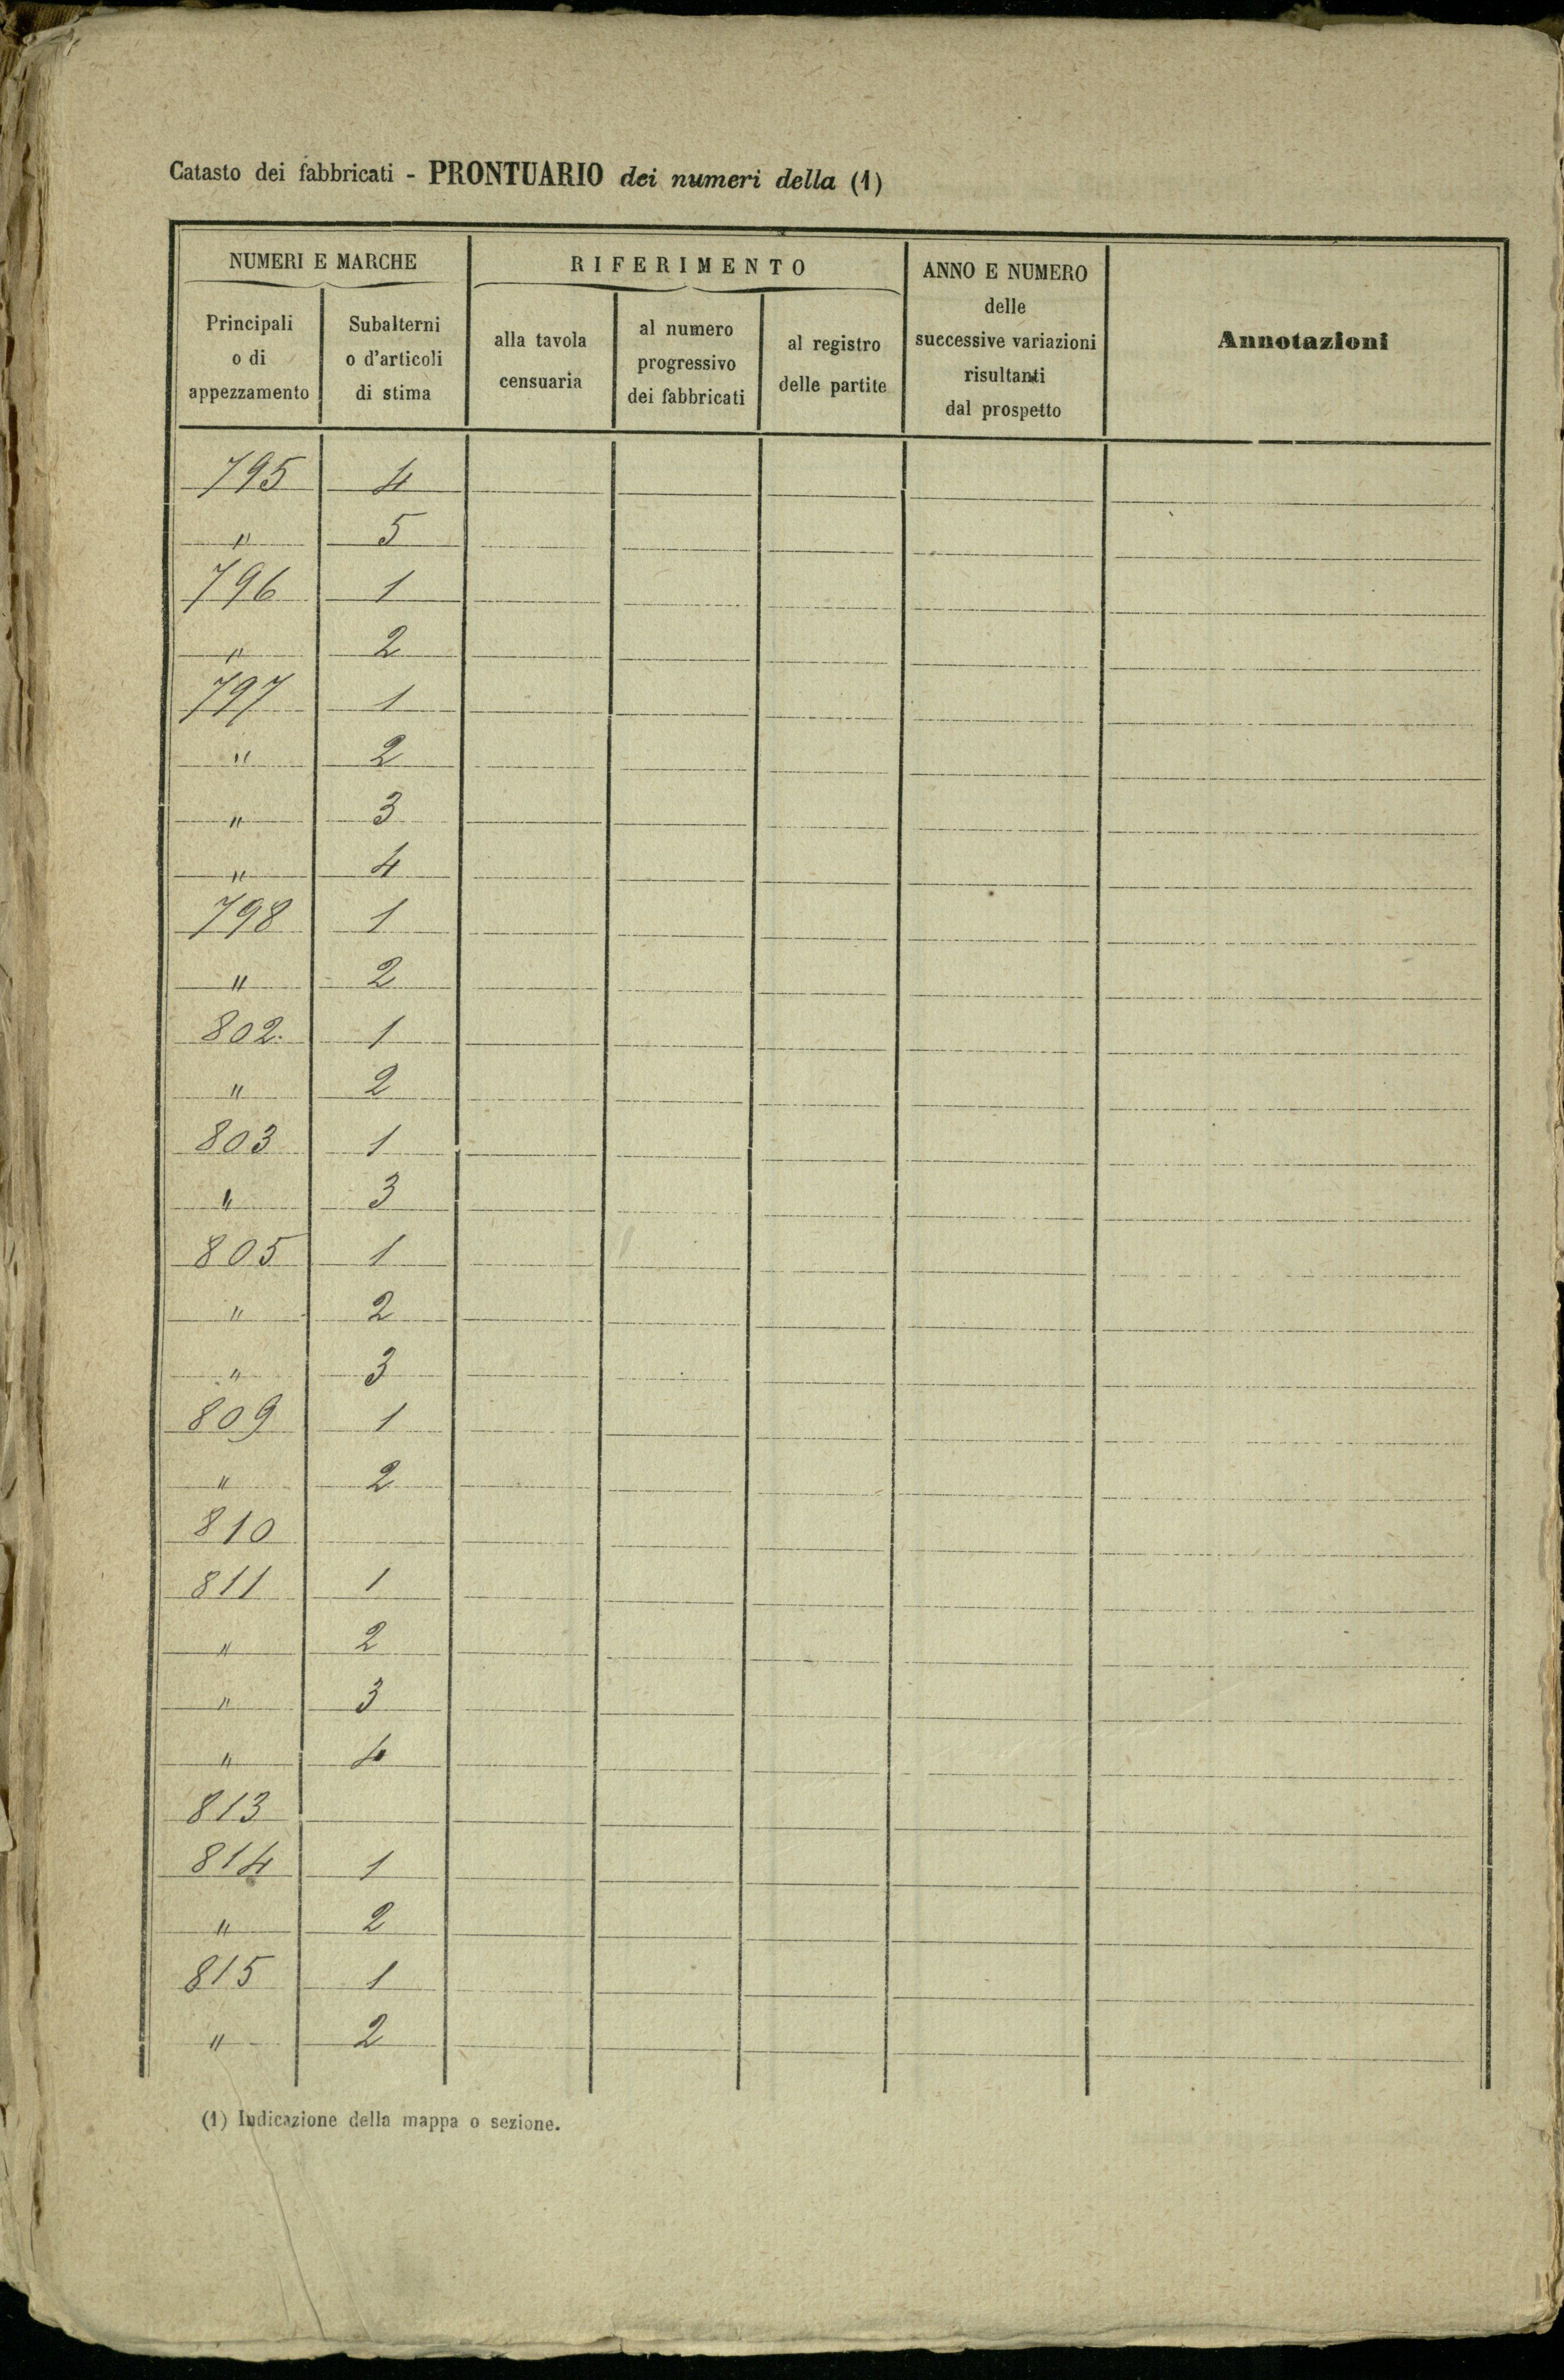 Catasto dei fabbricati - PRONTUARIO dei numeri della (1)
NUMERI E MARCHE
Principali
o di
appezzamento
Subalterni
o d'articoli
di stima
RIFERIMENTO
alla tavola
censuaria
al numero
progressivo
dei fabbricati
al registro
delle partite
ANNO E NUMERO
delle
successive variazioni
risultanti
dal prospetto
Annotazioni
795 4
" 5
796 1
" 2
797 1
" 2
" 3
" 4
798 1
" 2
802. 1
" 2
803 1
" 3
805 1
" 2
" 3
809 1
" 2
810
811 1
" 2
" 3
" 4
813
814 1
" 2
815 1
" 2
(1) Indicazione della mappa o sezione.